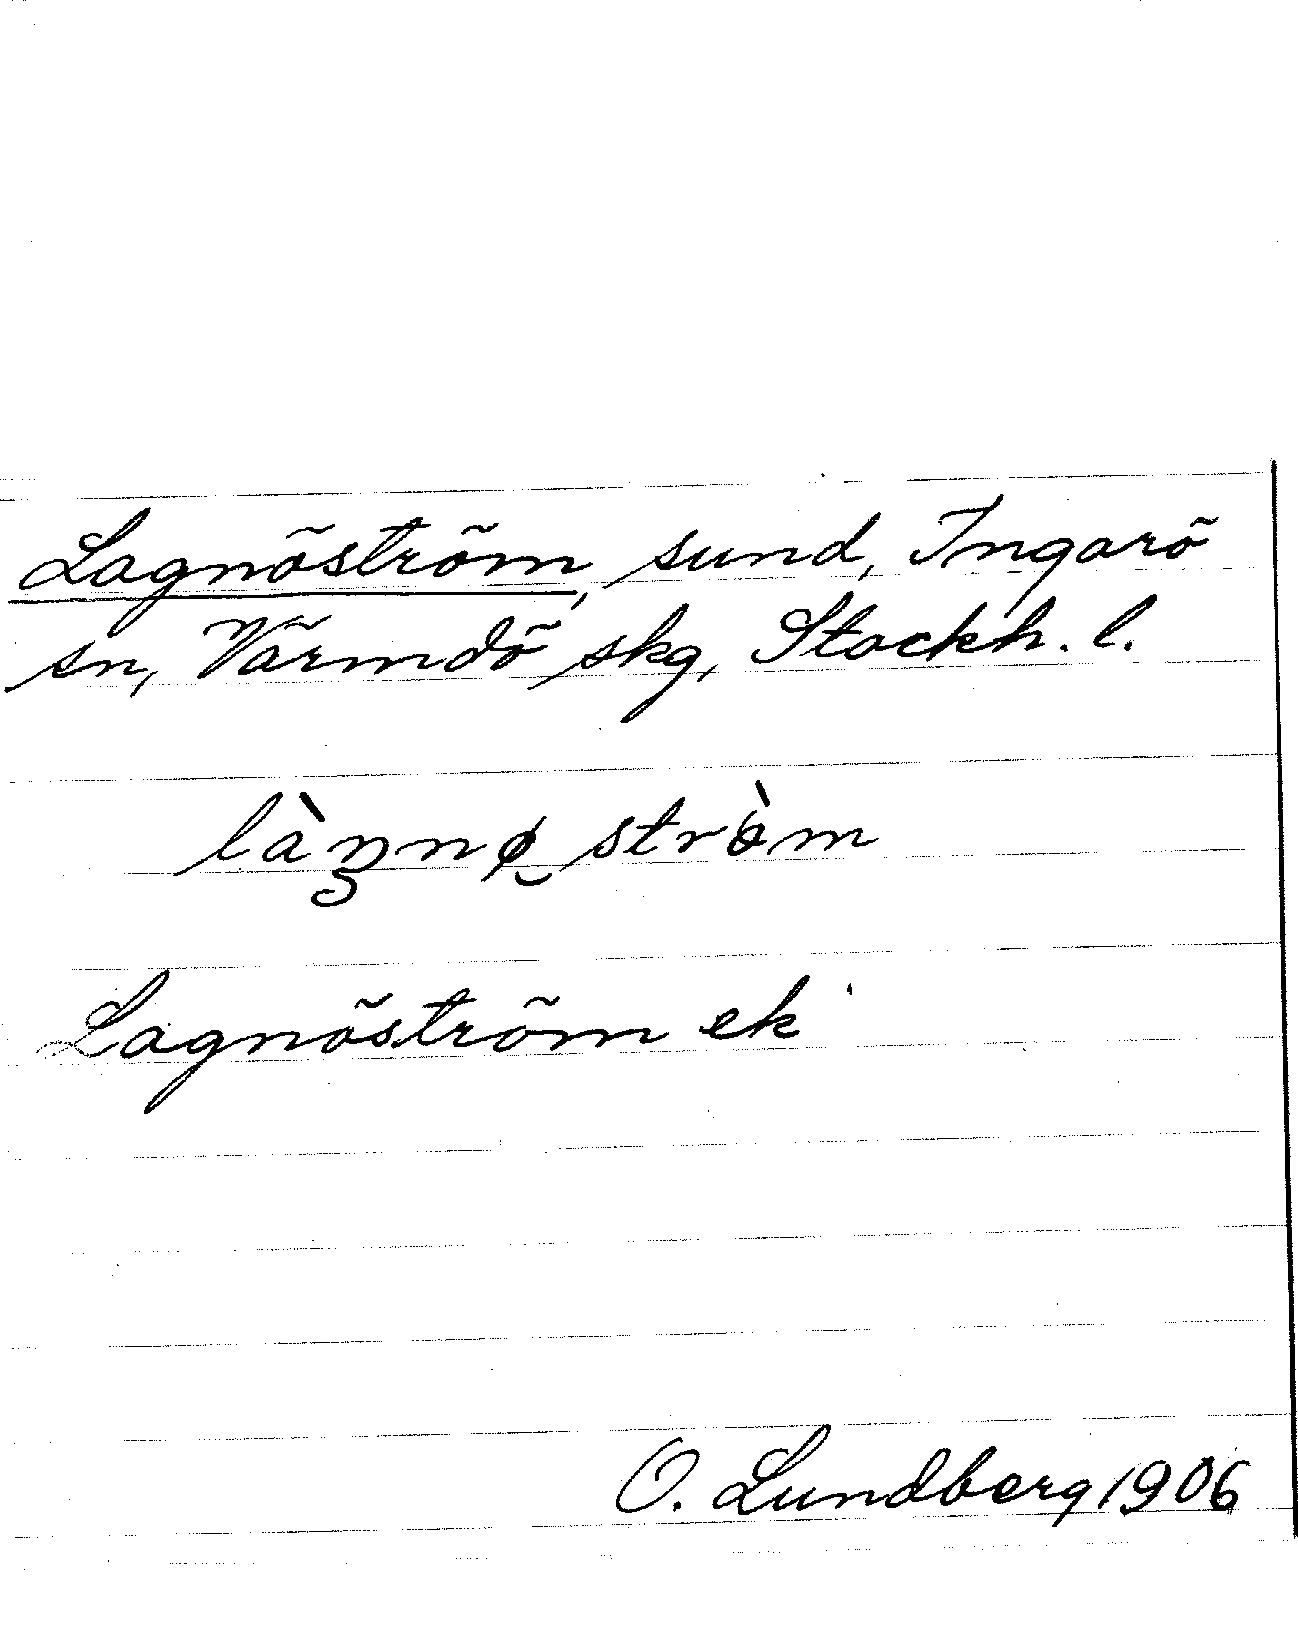 Lagnöström, sund, Ingarö
sn, Värmdö skg, Stockh. l.
làŋnø̮ stròm
Lagnöström ek
O. Lundberg 1906